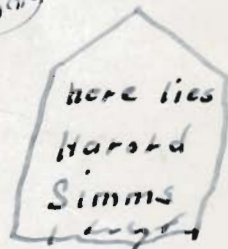 here lies
Harord
Simms